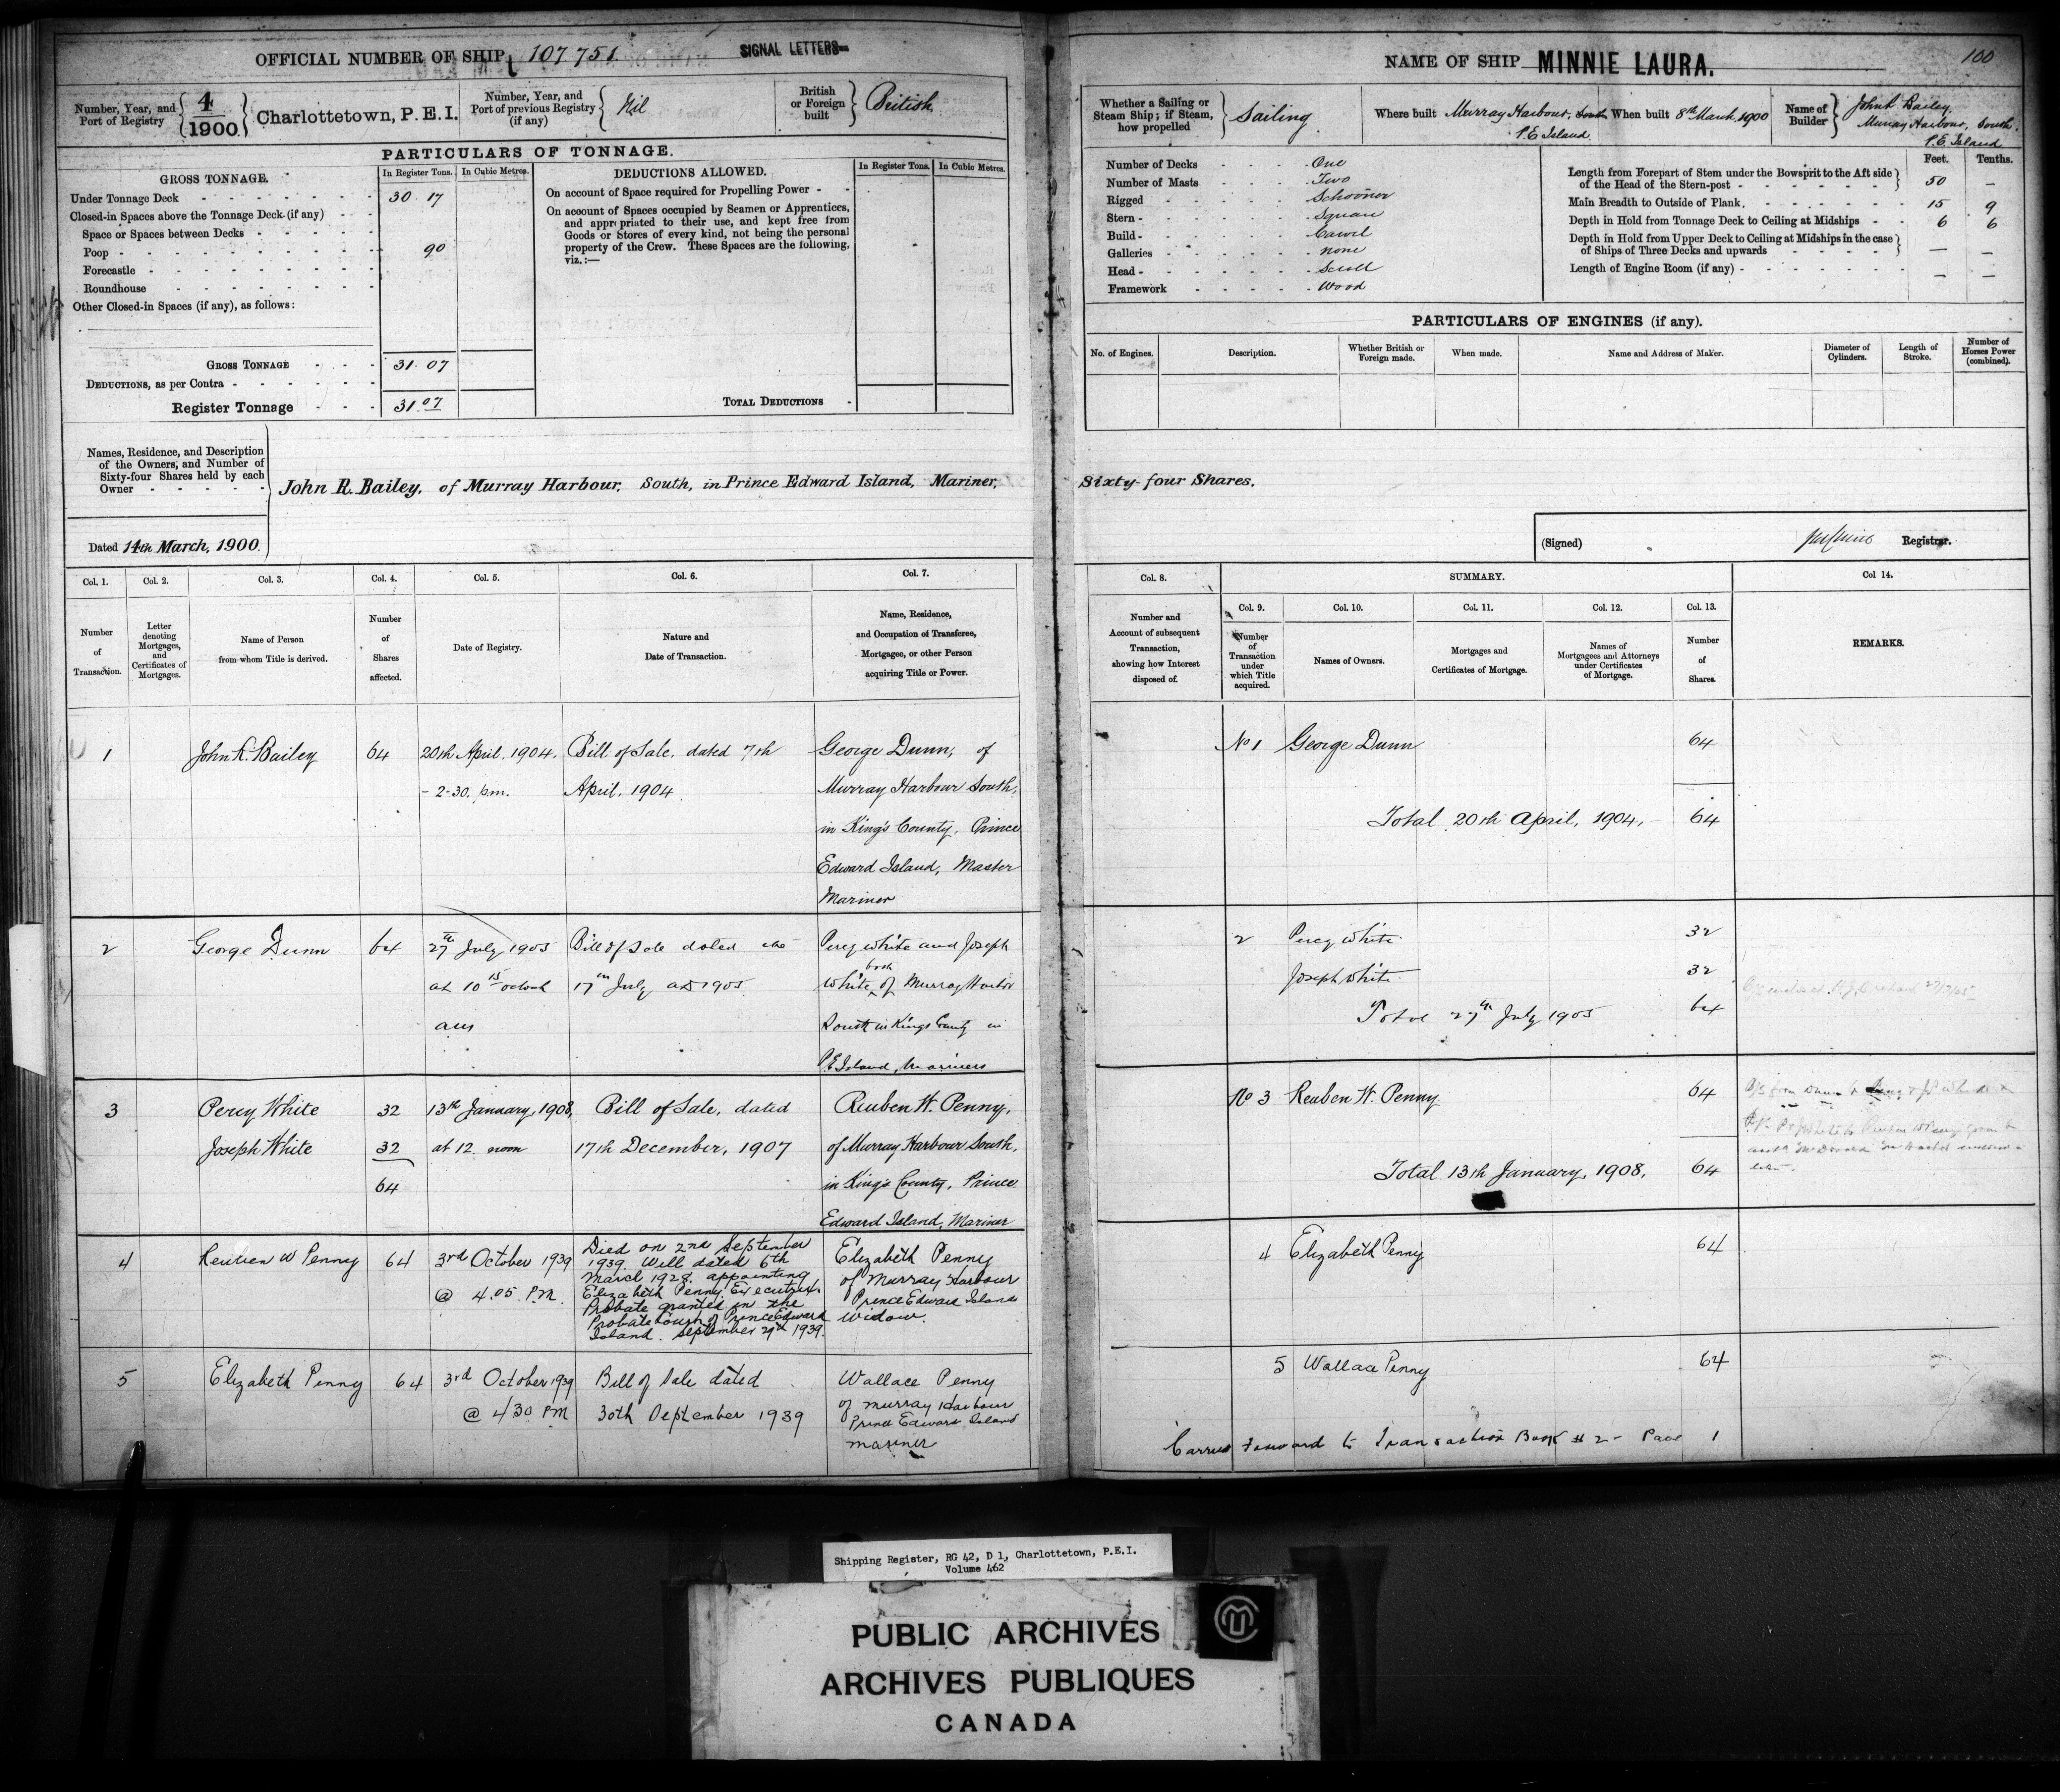 OFFICIAL NUMBER OF SHIP 107 751.
SIGNAL LETTERS
Number, Year, and Port of Registry
4
1900
Charlottetown, P.E.I.
Number, Year, and Port of previous Registry (if any)
Nil
British or Foreign built
British
PARTICULARS OF TONNAGE.
GROSS TONNAGE.
In Register Tons.
In Cubic Metres.
Under Tonnage Deck 30 17
Closed-in Spaces above the Tonnage Deck (if any)
Space or Spaces between Decks
Poop 90
Forecastle
Roundhouse
Other Closed-in Spaces (if any), as follows:
GROSS TONNAGE 31.07
DEDUCTIONS, as per Contra
Register Tonnage 31.07
DEDUCTIONS ALLOWED.
In Register Tons.
In Cubic Metres.
On account of Space required for Propelling Power
On account of Spaces occupied by Seamen or Apprentices,
and appropriated to their use, and kept free from
Goods or Stores of every kind, not being the personal
property of the Crew. These Spaces are the following,
viz.:—
TOTAL DEDUCTIONS
Names, Residence, and Description
of the Owners, and Number of
Sixty-four Shares held by each
Owner
John R. Bailey, of Murray Harbour, South, in Prince Edward Island, Mariner,
Dated 14th March, 1900.
Col. 1.
Number of Transaction.
Col. 2.
Letter denoting Mortgages, and Certificates of Mortgages.
Col. 3.
Name of Person from whom Title is derived.
Col. 4.
Number of Shares affected.
Col. 5.
Date of Registry.
Col. 6.
Nature and Date of Transaction.
Col. 7.
Name, Residence, and Occupation of Transferee, Mortgagee, or other Person acquiring Title or Power.
1
John R. Bailey
64
20th April, 1904.
- 2-30. p.m.
Bill of Sale, dated 7th
April, 1904
George Dunn, of
Murray Harbour South,
in King's County, Prince
Edward Island, Master
Mariner
2
George Dunn
64
27th July 1905
at 10 15 oclock
am
Bill of Sale dated the
17th July AD 1905
Percy White and Joseph
White, both of Murray Harbor
South in Kings County in
P.E Island, Mariners
3
Percy White
Joseph White
32
32
64
13th January, 1908,
at 12 noon
Bill of Sale, dated
17th December, 1907
Reuben W. Penny,
of Murray Harbour South,
in King's County, Prince
Edward Island, Mariner
4
Reuben W Penny
64
3rd October 1939
@ 4.05 P.M.
Died on 2nd September
1939. Will dated 6th
March 1928. appointing
Elizabeth Penny, Executrix.
Probate granted in the
Probate Court of Prince Edward
Island. September 29th 1939.
Elizabeth Penny
of Murray Harbour
Prince Edward Island
Widow.
5
Elizabeth Penny
64
3rd October 1939
@ 4 30 PM
Bill of Sale dated
30th September 1939
Wallace Penny
of Murray Harbour
Prince Edward Island
mariner
NAME OF SHIP MINNIE LAURA.
100
Whether a Sailing or Steam Ship; if Steam, how propelled
Sailing
Where built Murray Harbour, South
P.E Island
When built 8th March 1900
Name of Builder
John R. Bailey,
Murray Harbour, South.
P.E. Island
Number of Decks One
Number of Masts Two
Rigged Schooner
Stern Square
Build Carvel
Galleries none
Head Scroll
Framework Wood
Feet. Tenths.
Length from Forepart of Stem under the Bowsprit to the Aft side of the Head of the Stern-post 50 —
Main Breadth to Outside of Plank 15 9
Depth in Hold from Tonnage Deck to Ceiling at Midships 6 6
Depth in Hold from Upper Deck to Ceiling at Midships in the case of Ships of Three Decks and upwards — —
Length of Engine Room (if any) — —
PARTICULARS OF ENGINES (if any).
No. of Engines.
Description.
Whether British or Foreign made.
When made.
Name and Address of Maker.
Diameter of Cylinders.
Length of Stroke.
Number of Horses Power (combined).
Sixty-four Shares.
(Signed)
Registrar.
Col. 8.
Number and Account of subsequent Transaction, showing how Interest disposed of.
SUMMARY.
Col. 9.
Number of Transaction under which Title acquired.
Col. 10.
Names of Owners.
Col. 11.
Mortgages and Certificates of Mortgage.
Col. 12.
Names of Mortgagees and Attorneys under Certificates of Mortgage.
Col. 13.
Number of Shares.
Col 14.
REMARKS.
No 1 George Dunn 64
Total 20th April, 1904, 64
2 Percy White 32
Joseph White 32
Total 27th July 1905 64
No 3 Reuben W. Penny 64
Total 13th January, 1908, 64
4 Elizabeth Penny 64
5 Wallace Penny 64
Carried forward to Transaction Book # 2 - Page 1
Shipping Register, RG 42, D 1, Charlottetown, P.E.I.
Volume 462
PUBLIC ARCHIVES
ARCHIVES PUBLIQUES
CANADA